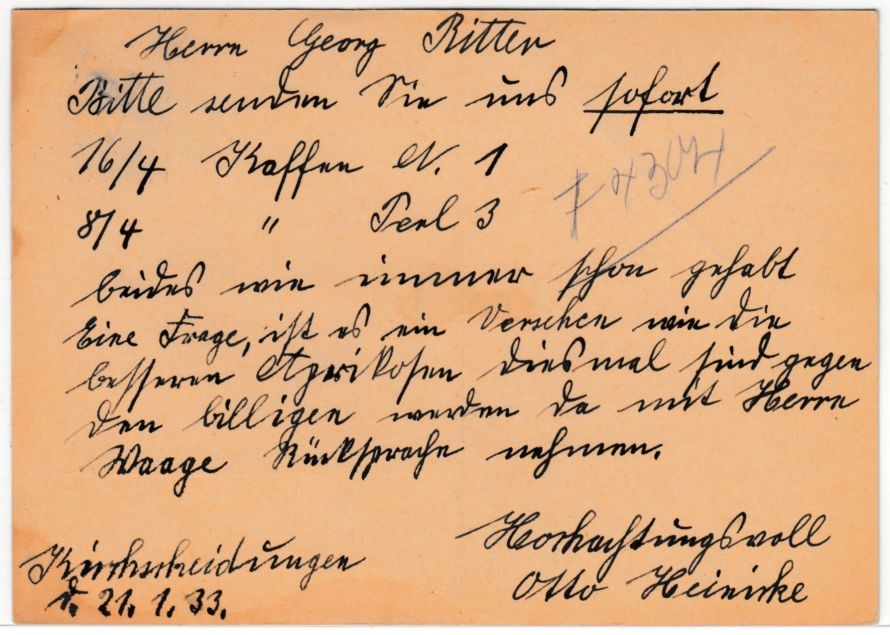 Herrn Georg Ritter
Bitte senden Sie uns sofort
16/4 Kaffee N. 1
8/4 " Perl 3
beides wie immer schon gehabt
Eine Frage, ist es ein Versehen wie die
besseren Aprikosen diesmal sind gegen
den billigen werden da mit Herrn
Waage Rücksprache nehmen.
Hochachtungsvoll
Kirchscheidungen
Otto Heinicke
d. 21.1.33.